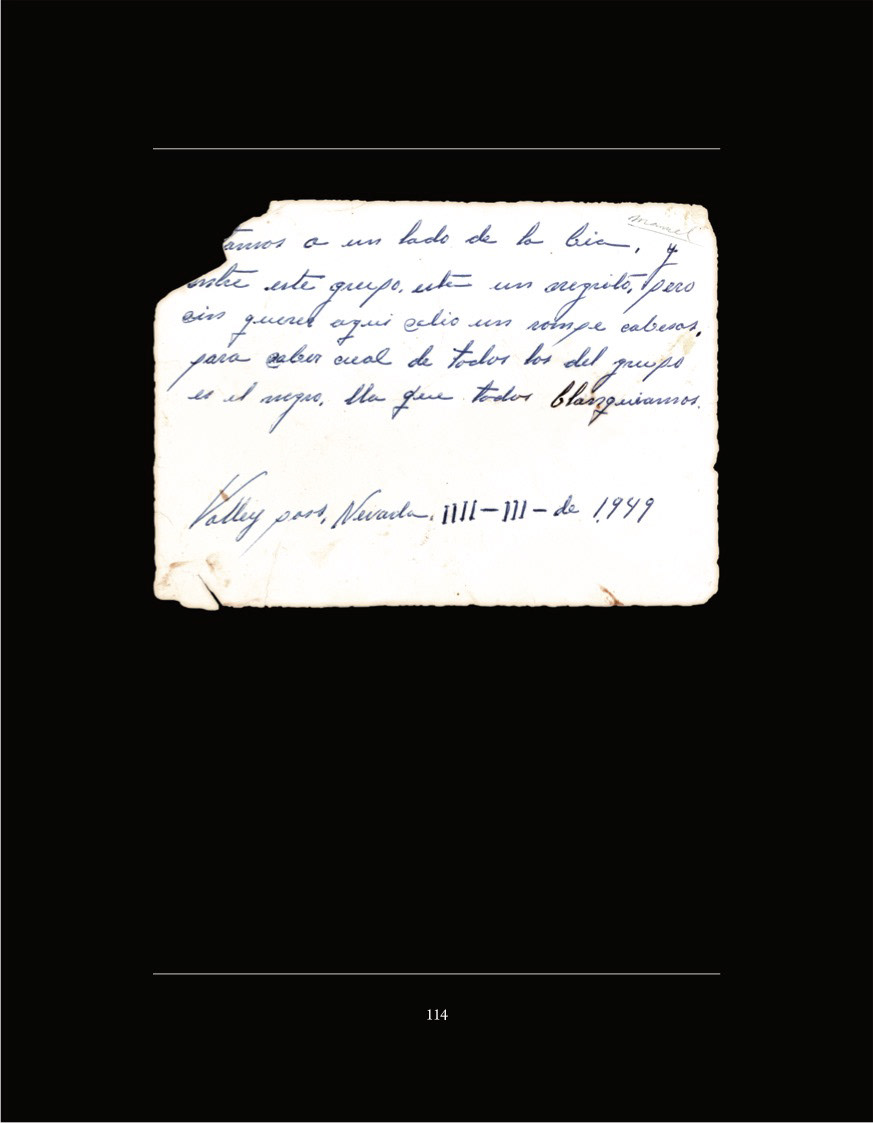 Manuel
tamos a un lado de la bia, y
entre este grupo, esta un negrito, pero
sin querer aqui salio un rompe cabesas,
para saber cual de todos los del grupo
es el negro, lla que todos blanquiamos.
Valley pass, Nevada, IIII-III- de 1,949
114